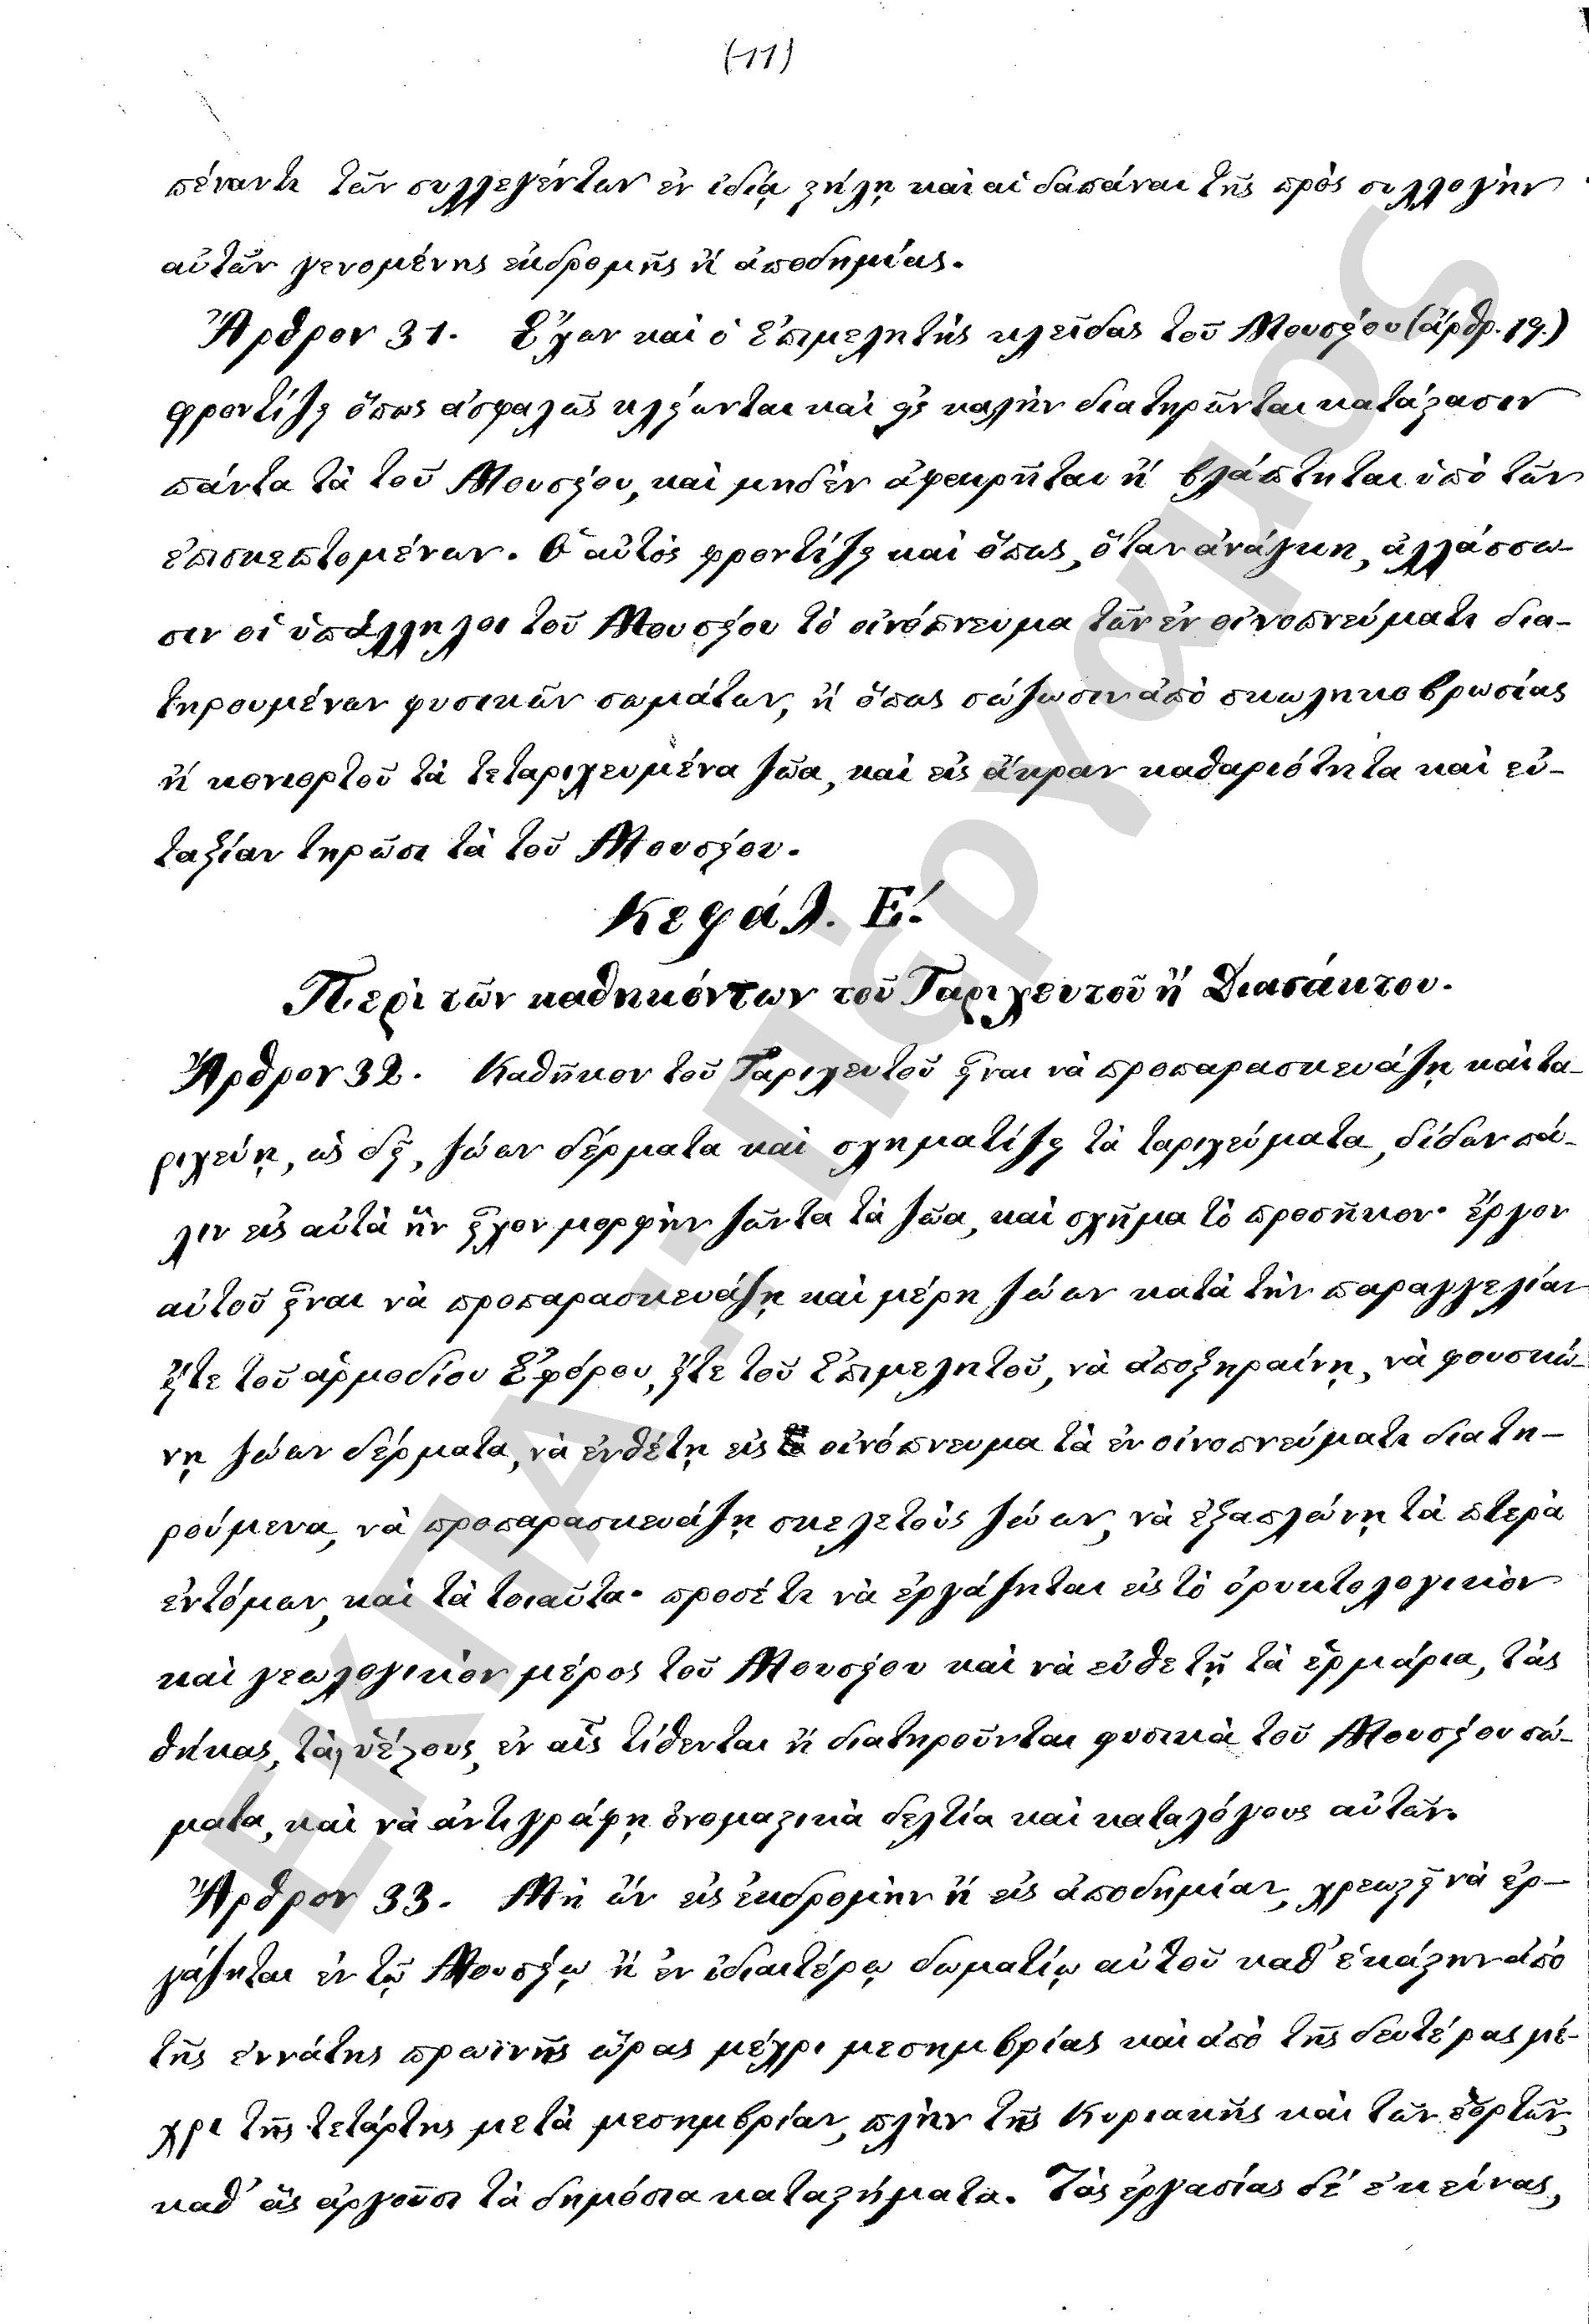 (11)
πέναντι τῶν συλλεγέντων ἐν ἰδίᾳ στήλῃ καὶ αἱ δαπάναι τῆς πρὸς συλλογὴν
αὐτῶν γενομένης ἐκδρομῆς ἢ ἀποδημίας.
Ἄρθρον 31. Ἔχων καὶ ὁ Ἐπιμελητὴς κλεῖδας τοῦ Μουσείου (ἄρθρ. 19.)
φροντίζει ὅπως ἀσφαλῶς κλείωνται καὶ εἰς καλὴν διατηρῶνται κατάστασιν
πάντα τὰ τοῦ Μουσείου, καὶ μηδὲν ἀφαιρῆται ἢ βλάπτηται ὑπὸ τῶν
ἐπισκεπτομένων. Ὁ αὐτὸς φροντίζει καὶ ὅπως, ὅταν ἀνάγκη, ἀλλάσσω-
σιν οἱ ὑπάλληλοι τοῦ Μουσείου τὸ οἰνόπνευμα τῶν ἐν οἰνοπνεύματι δια-
τηρουμένων φυσικῶν σωμάτων, ἢ ὅπως σώζωσιν ἀπὸ σκωληκοβρωσίας
ἢ κονιορτοῦ τὰ τεταριχευμένα ζῶα, καὶ εἰς ἄκραν καθαριότητα καὶ εὐ-
ταξίαν τηρῶσι τὰ τοῦ Μουσείου.
Κεφάλ. Ε΄.
Περὶ τῶν καθηκόντων τοῦ Ταριχευτοῦ ἢ Διασάκτου.
Ἄρθρον 32. Καθῆκον τοῦ Ταριχευτοῦ εἶναι νὰ προπαρασκευάζῃ καὶ τα-
ριχεύῃ, ὡς δεῖ, ζώων δέρματα καὶ σχηματίζει τὰ ταριχεύματα, δίδων πά-
λιν εἰς αὐτὰ ἣν εἶχον μορφὴν ζῶντα τὰ ζῶα, καὶ σχῆμα τὸ προσῆκον· ἔργον
αὐτοῦ εἶναι νὰ προπαρασκευάζῃ καὶ μέρη ζώων κατὰ τὴν παραγγελίαν
εἴτε τοῦ ἁρμοδίου Ἐφόρου, εἴτε τοῦ Ἐπιμελητοῦ, νὰ ἀποξηραίνῃ, νὰ φουσκώ-
νῃ ζώων δέρματα, νὰ ἐνθέτῃ εἰς οἰνόπνευμα τὰ ἐν οἰνοπνεύματι διατη-
ρούμενα, νὰ προπαρασκευάζῃ σκελετοὺς ζώων, νὰ ἐξαπλώνῃ τὰ πτερὰ
ἐντόμων, καὶ τὰ τοιαῦτα· προσέτι νὰ ἐργάζηται εἰς τὸ ὀρυκτολογικὸν
καὶ γεωλογικὸν μέρος τοῦ Μουσείου καὶ νὰ εὐθετῇ τὰ ἑρμάρια, τὰς
θήκας, τὰς ὑέλους, ἐν αἷς τίθενται ἢ διατηροῦνται φυσικὰ τοῦ Μουσείου σώ-
ματα, καὶ νὰ ἀντιγράφῃ ὀνομαστικὰ δελτία καὶ καταλόγους αὐτῶν.
Ἄρθρον 33. Μὴ ὢν εἰς ἐκδρομὴν ἢ εἰς ἀποδημίαν, χρεωστεῖ νὰ ἐρ-
γάζηται ἐν τῷ Μουσείῳ ἢ ἐν ἰδιαιτέρῳ δωματίῳ αὐτοῦ καθ' ἑκάστην ἀπὸ
τῆς ἐννάτης πρωϊνῆς ὥρας μέχρι μεσημβρίας καὶ ἀπὸ τῆς δευτέρας μέ-
χρι τῆς τετάρτης μετὰ μεσημβρίαν, πλὴν τῆς Κυριακῆς καὶ τῶν ἑορτῶν,
καθ' ἃς ἀργοῦσι τὰ δημόσια καταστήματα. Τὰς ἐργασίας δὲ ἐκείνας,
ΕΚΠΑ - Πέργαμος